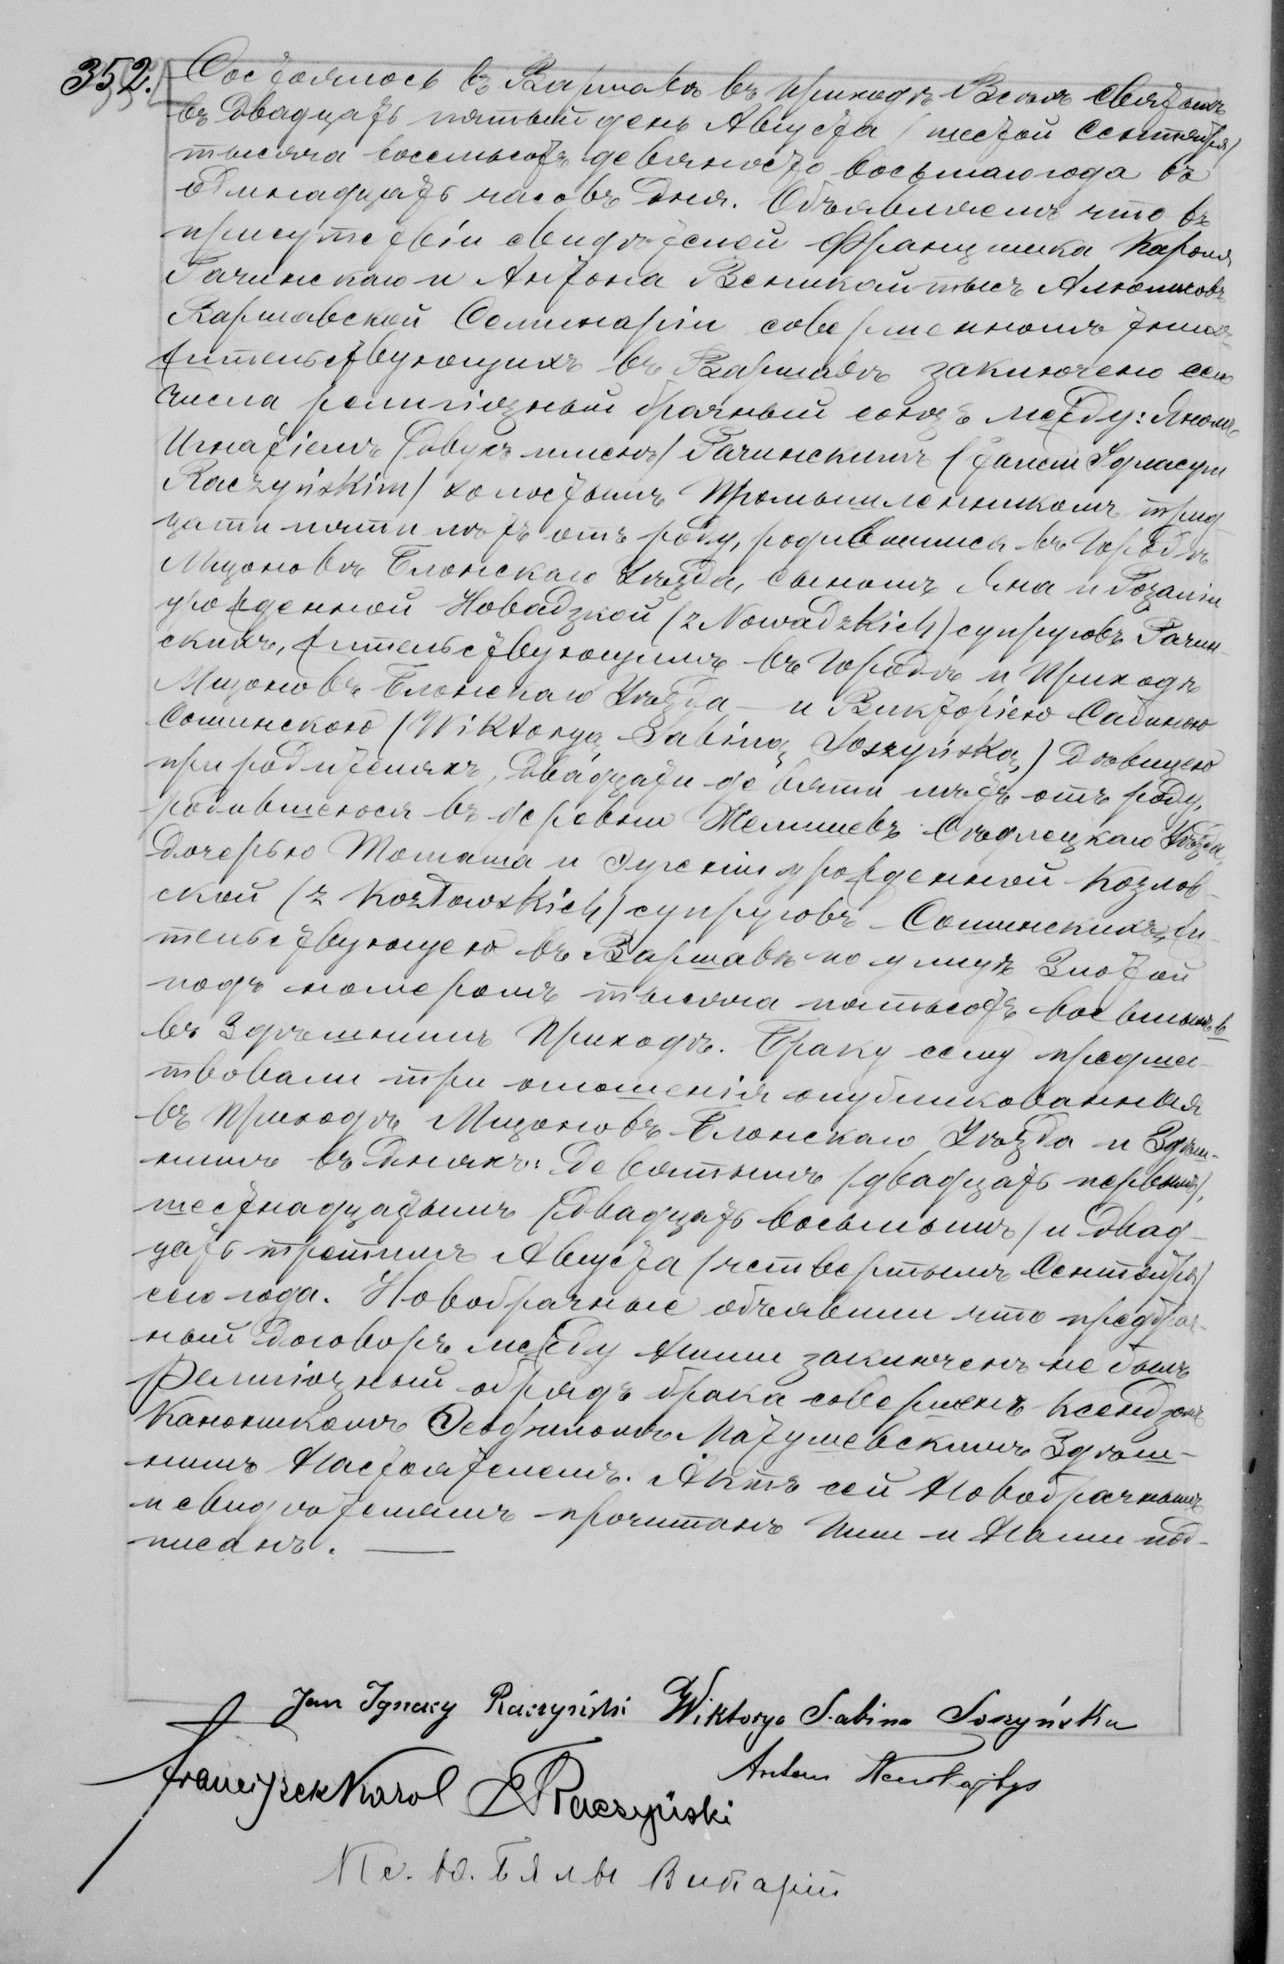 352. Состоялось въ Варшавѣ въ приходѣ Всѣхъ Святыхъ
въ двадцать пятый день Августа / шестой Сентября /
тысяча восемьсотъ девяносто восьмаго года въ
одинадцать часовъ дня. Объявляемъ что въ
присутствіи свидѣтелей Францишка Кароля
Рачинскаго и Антона Венцкайтысъ Алюмновъ
Варшавской Семинаріи совершеннолѣтнихъ
жительствующихъ въ Варшавѣ заключено сего
числа религіозный брачный союзъ между: Яномъ
Игнатіемъ (двухъ именъ) Рачинскимъ (Janem Ignacym
Raczyńskim) холостымъ Промышленникомъ трид-
цати пяти лѣтъ отъ роду, родившимся въ Городѣ
Мщоновѣ Блонскаго Уѣзда, сыномъ Яна и Розаліи
урожденной Новадзкой (z Nowadzkich) супруговъ Рачин-
скихъ, жительствующимъ въ Городѣ и Приходѣ
Мщоновѣ Блонскаго Уѣзда — и Викторіею Сабиною
Сошинскою (Wiktoryą Sabiną Soszyńską) дѣвицею
при родителяхъ, двадцати девяти лѣтъ отъ роду,
родившеюся въ деревни Желишевъ Сѣдлецкаго Уѣзда,
дочерью Томаша и урожденной Козлов-
ской (z Kozłowskich) супруговъ Сошинскихъ, жи-
тельствующею въ Варшавѣ по улицѣ Злотой
подъ номеромъ тысяча пятьсотъ восьмымъ
въ Здѣшнимъ Приходѣ. Браку сему предше-
ствовали три оглошенія опубликованныя
въ приходѣ Мщоновъ Блонскаго Уѣзда и Здѣш-
нимъ въ дняхъ: девятымъ (двадцать первымъ),
шестнадцатымъ (двадцать восьмымъ) и двад-
цать третимъ Августа (четвертымъ Сентября)
сего года. Новобрачные объявили что предбрач-
ный договоръ между ними заключенъ не былъ
Религіозный обрядъ брака совершенъ Ксендзомъ
Каноникомъ Теофиломъ Матушевскимъ Здѣш-
нимъ Настоятелемъ. Актъ сей Новобрачнымъ
и свидѣтелямъ прочитанъ Ими и Нами под-
писанъ. —
Jan Ignacy Raczyński Wiktorya Sabina Soszyńska
Franciszek Karol Raczyński Antoni
Кс. Ю. Бялы Викарій